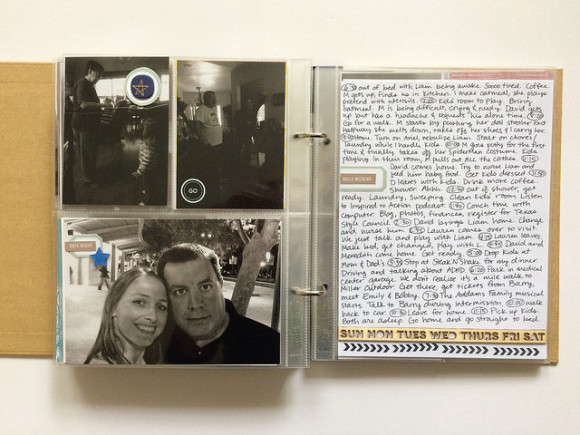 GO
DATE NIGHT
6:30 out of bed with Liam being awake. Sooo tired. Coffee.
M gets up, finds us in kitchen. I make oatmeal, she plays
pretend with utensils. Kids' room to play. Bring
oatmeal. M is being difficult, crying & needy. David gets
up but has a headache & requests his alone time. 8:30
Go for a walk. M starts by pushing her doll stroller and
halfway she melts down, takes off her shoes & I carry her
home. Turn on Ariel, nebulize Liam. Start on chores/
laundry while I handle kids. M goes potty for the first
time & finally takes off her Spiderman costume. Kids
playing in their room, M pulls out all the clothes. 11:15
David comes home. Try to nurse Liam and
feed him baby food. Get kids dressed. 11:50
D leaves with kids. Drink more coffee.
HELLO WEEKEND
Shower. Ahhh. 12:30 out of shower, get
ready. Laundry, sweeping. Clean kids' room. Listen
to Inspired to Action podcast. 1:45 Couch time with
computer. Blog, photos, finances, register for Texas
Style Council. 2:30 David brings Liam home. Change
and nurse him. Lauren comes over to visit.
We just talk and play with Liam. Lauren leaves.
Make bed, get changed, play with L. David and
Meredith come home. Get ready. 5:00 Drop kids at
Mom & Dad's. 5:30 Stop at Steak N Shake for my dinner.
Driving and talking about ADHD. 6:20 Park in medical
center garage. We don't realize it's a mile walk to
Miller Outdoor. Get there, get tickets from Barry,
meet Emily & Bobby. 7:30 The Addams Family musical
starts. Talk to Barry during intermission. 10:20 walk
back to car. Leave for home. 11:15 Pick up kids.
Both are asleep. Go home and go straight to bed.
SUN MON TUES WED THURS FRI SAT